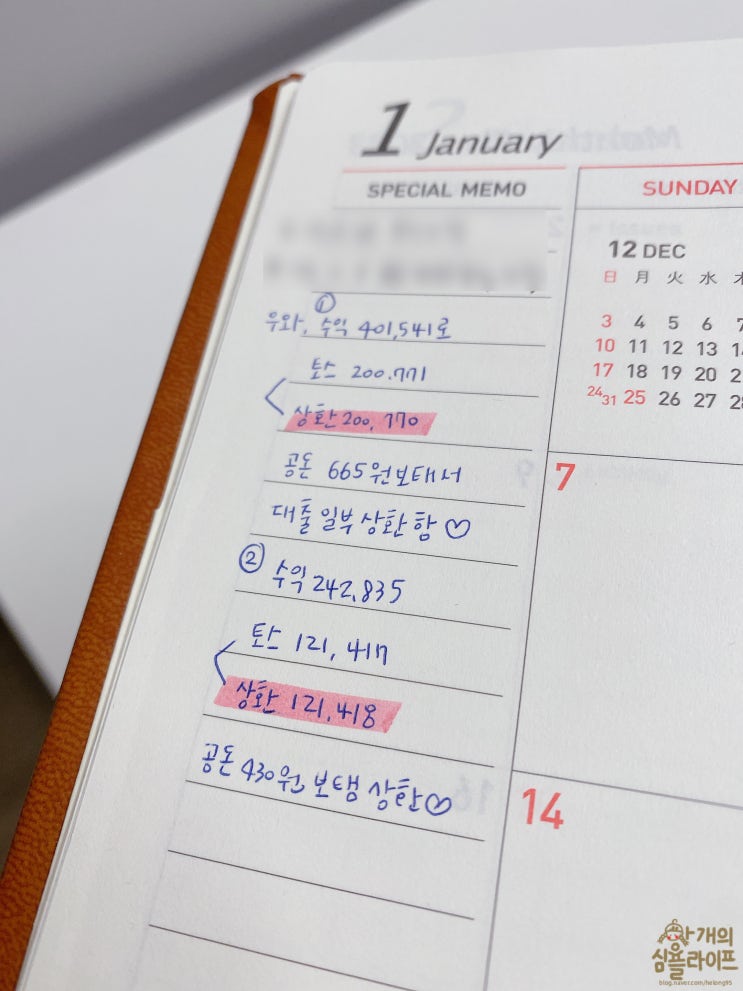 1 January
SPECIAL MEMO
①
우와, 수익 401,541로
토스 200.771
상환 200,770
공돈 665원 보태서
대출 일부 상환함♡
② 수익 242,835
토스 121,417
상환 121,418
공돈 430원 보탬 상환♡
SUNDAY
12 DEC
日 月 火 水
3 4 5 6 7
10 11 12 13
17 18 19 20
24 31 25 26 27
7
14
개의
심플라이프
blog.naver.com/helong95